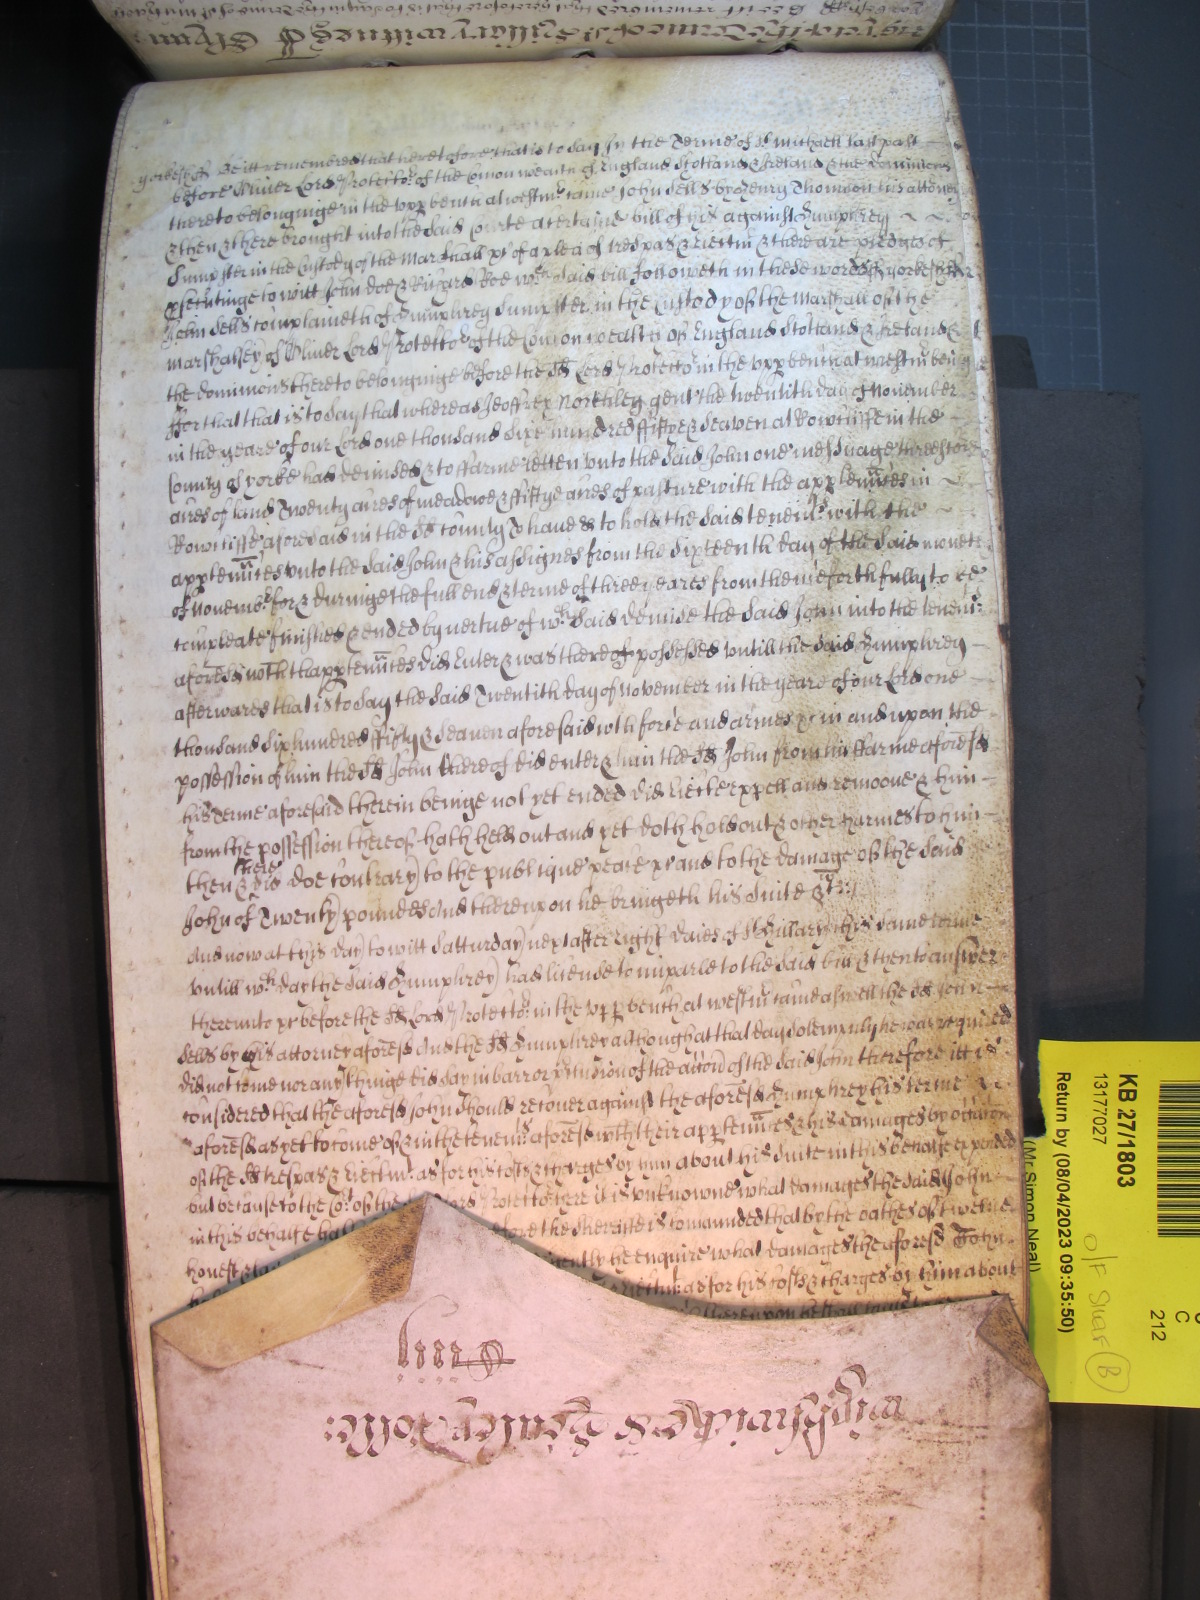 yorkesh ss Be itt remembred that heretofore that is to say In the Terme of St Michaell last past
before Oliver Lord Protector of the Comon wealth of England Scotland & Ireland & the dominions
thereto belonginge in the upp bench at westmr came John Sells by Henry Thomson his attorney
& then & there brought into the said Courte a certaine bill of his against Humphrey
Dumpster in the Custody of the Marshall &c of a plea of trespas & Eiectm & there are pledges of
prsecutinge to witt John Doe & Richard Roe wch said bill followeth in these words ss yorkeshire ss
John Sells complaineth of Humphrey Dumpster in the Custody of the Marshall of the
marshalsey of Oliver Lord Protector of the Comon wealth of England Scotland & Ireland &
the dominions thereto belonginge before the sd Lord Protector in the upp bench at westmr beinge
ffor that that is to say that whereas Jeoffrey Northley gent the twentith day of November
in the yeare of our Lord one thousand sixe hundred ffiftye & seaven at Rowcliffe in the
County of yorke had demised & to ffarme letten unto the said John one messuage threescore
acres of land Twenty acres of meadowe & ffiftye acres of pasture with the apptenances in
Rowcliffe aforesaid in the sd county To have & to hold the said tenemts with the
apptenances unto the said John & his assignes from the sixteenth day of the said moneth
of Novembr for & duringe the full end & terme of three yeares from thence forth fully to be
compleate finished & ended by vertue of wch said demise the said John into the tenemts
aforesd with thapptenances did Enter & was thereof possessed untill the said Humphrey
afterwards that is to say the said Twentith day of November in the yeare of our Lord one
thousand six hundred ffifty & seaven aforesaid wth force and armes &c in and upon the
possession of him the sd John thereof did enter & him the sd John from his ffarme aforesd
his terme aforesaid therein beinge not yet ended did Eiecte expell and remoove & him
from the possession thereof hath held out and yet doth hold out & other harmes to him
there
then & did doe contrary to the publique peace &c and to the damage of the said
John of Twenty poundes And thereupon he bringeth his suite &c
And now at this day to witt Satturday next after Eight daies of St Hillary this same terme
untill wch day the said Humphrey had licence to imparle to the said bill & then to answer
thereunto &c before the sd Lord Protector in the upp bench at westmr came aswell the sd John
Sells by his attorney aforesd And the sd Humphrey although at that day solemnly he was required
did not come nor any thinge did say in barr or preclusion of the accon of the said John therefore itt is
considered that the aforesd John should recover against the aforesd Humphrey his terme
aforesd as yet to come of & in the tenemts aforesd with their apptenances & his damages by occasion
of the sd trespas & Eiectm as for his costs & charges by him about his suite in this behalfe expended
but because to the Cot of the Lord Protector here it is unknowne what damages the said John
in this behalfe hath before the Sherriffe is comanded that by the oathes of twelve
honest & la diligently he enquire what damages the aforesd John
Eiectm as for his costs & charges by him about
thereupon
Cciiij
KB 27/1803
13177027
Return by (08/04/2023 09:35:50)
(Mr Simon Neal)
O/F Shelf (B)
C
212